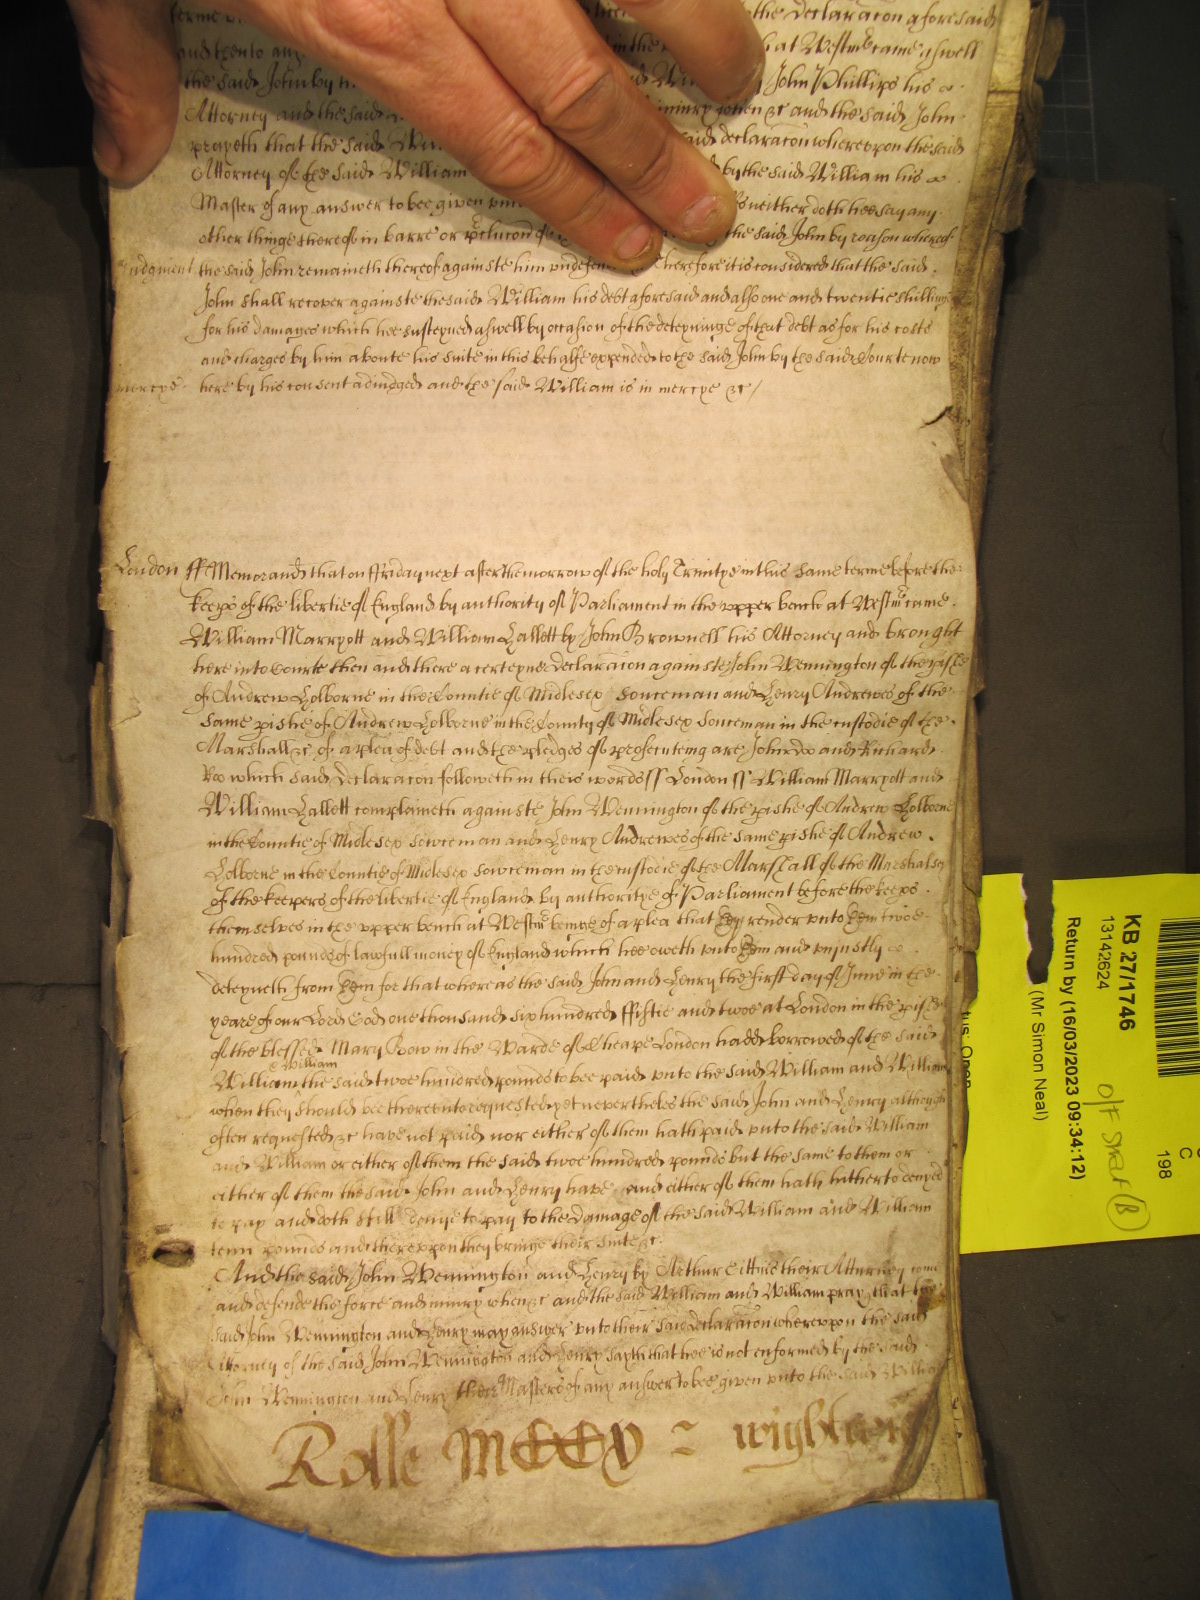 terme the declaracon aforesaid
and thereto in the at Westm came aswell
the said John by John Phillips his
Attorney and the said iniury when &c and the said John
prayeth that the said declaracon whereupon the said
Attorney of the said William by the said William his
Master of any answer to bee given neither doth hee say any
other thinge thereof in barre or p'clucon of the said John by reason whereof
Judgment the said John remaineth thereof againste him undefended Therefore it is considered that the said
John shall recover againste the said William his debt aforesaid and also one and twentie shillings
for his damages which hee susteyned aswell by occasion of the deteyninge of that debt as for his costs
and charges by him aboute his suite in this behalfe expended to the said John by the said Courte now
mercye here by his consent adiudged and the said William is in mercye &c
London ss Memorand that on Friday next after the morrow of the holy Trinitye in this same terme before the
keeps of the libertie of England by authority of Parliament in the upper bench at Westm came
William Marryott and William Hallett by John Brownell his Attorney and brought
here into Courte then and there a certeyne declaracion againste John Wennington of the pishe
of Andrew Holborne in the Countie of Midlesex Souceman and Henry Andrewes of the
same pishe of Andrew Holborne in the County of Midlesex Souceman in the custodie of the
Marshall &c of a plea of debt and the pledges of prosecuteing are John Doo and Richard
Roo which said declaracon followeth in theis words ss London ss William Marryott and
William Hallett complaineth againste John Wennington of the pishe of Andrew Holborne
in the Countie of Midlesex Sowceman and Henry Andrewes of the same pishe of Andrew
Holborne in the Countie of Midlesex Sowceman in the custodie of the Marshall of the Marshalsey
of the keepers of the libertie of England by authoritye of Parliament before the keeps
themselves in the upper bench at Westm beinge of a plea that they render unto them twoe
hundred pounds of lawfull money of England which hee oweth unto them and uniustly
deteyneth from them for that whereas the said John and Henry the first day of June in the
yeare of our Lord God one thousand six hundred fiftie and twoe at London in the pishe
of the blessed Mary Bow in the Warde of Cheape London hadd borrowed of the said
& William
William the said twoe hundred pounds to bee paid unto the said William and William
when they should bee thereunto requested yet nevertheles the said John and Henry although
often requested &c have not paid nor either of them hath paid unto the said William
and William or either of them the said twoe hundred pounds but the same to them or
either of them the said John and Henry have and either of them hath hitherto denyed
to pay and doth still denye to pay to the damage of the said William and William
tenn pounds and thereupon they bringe their suite &c
And the said John Wennington and Henry by Arthur their Atturney come
and defende the force and iniury when &c and the said William and William pray that the
said John Wennington and Henry may answer unto their said declaracon whereupon the said
Attorney of the said John Wennington and Henry sayth that hee is not enformed by the said
John Wennington and Henry their Masters of any answer to bee given unto the said William
Rolle MCCXV
KB 27/1746
13142624
Return by (16/03/2023 09:34:12)
(Mr Simon Neal)
C
198
O/F
B